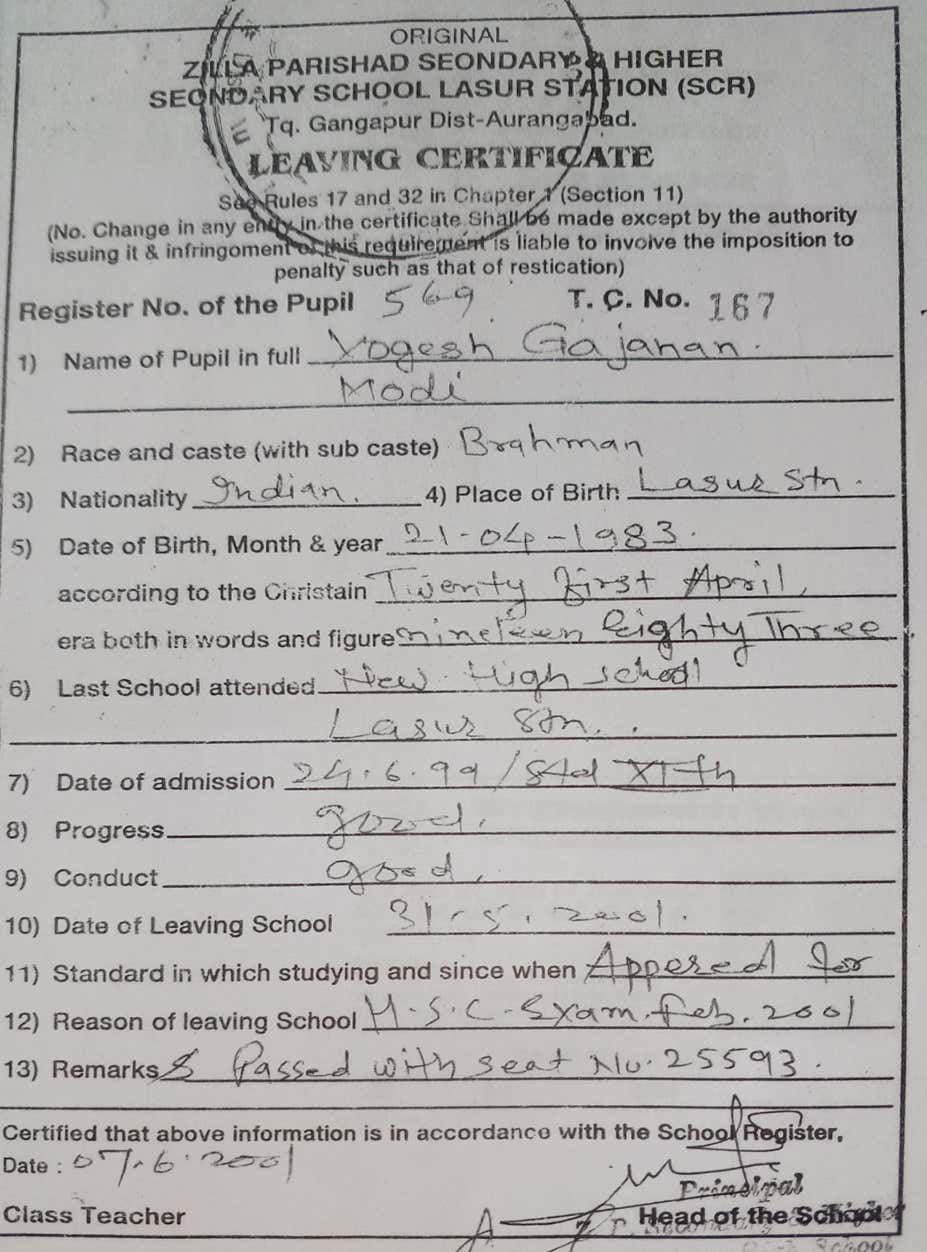 ORIGINAL
ZILLA PARISHAD SEONDARY & HIGHER
SEONDARY SCHOOL LASUR STATION (SCR)
Tq. Gangapur Dist-Aurangabad.
LEAVING CERTIFICATE
See Rules 17 and 32 in Chapter 1 (Section 11)
(No. Change in any entry in the certificate Shall be made except by the authority
issuing it & infringoment of this requirement is liable to involve the imposition to
penalty such as that of restication)
Register No. of the Pupil 569 T. C. No. 167
1) Name of Pupil in full Yogesh Gajanan.
Modi
2) Race and caste (with sub caste) Brahman
3) Nationality Indian. 4) Place of Birth Lasur Stn.
5) Date of Birth, Month & year 21-04-1983.
according to the Christain Twenty first April,
era both in words and figure nineteen Eighty Three
6) Last School attended New High school
Lasur Stn.
7) Date of admission 24.6.99/Std XIth
8) Progress good.
9) Conduct good.
10) Date of Leaving School 31.5.2001.
11) Standard in which studying and since when Appered for
12) Reason of leaving School H.S.C. Exam. Feb. 2001
13) Remarks & Passed with seat No. 25593.
Certified that above information is in accordance with the School Register,
Date : 07.6.2001
Principal
Class Teacher Head of the School